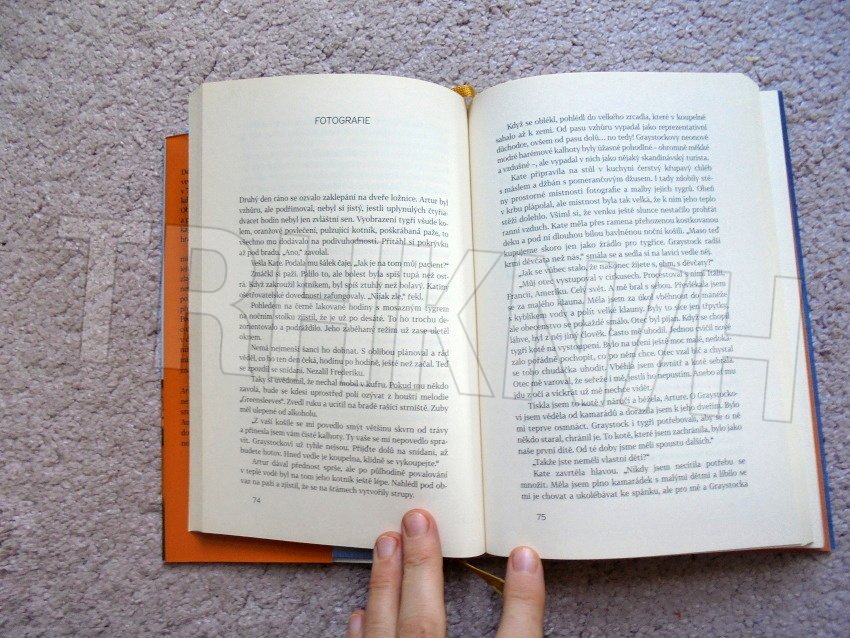 FOTOGRAFIE
Druhý den ráno se ozvalo zaklepání na dveře ložnice. Artur byl
vzhůru, ale podřimoval, nebyl si jistý, jestli uplynulých čtyřia-
dvacet hodin nebyl jen zvláštní sen. Vyobrazení tygři všude ko-
lem, oranžové povlečení, pulzující kotník, poškrábaná paže, to
všechno mu dodávalo na podivuhodnosti. Přitáhl si pokrývku
až pod bradu. „Ano,“ zavolal.
Vešla Kate. Podala mu šálek čaje. „Jak je na tom můj pacient?“
Zmáčkl si paži. Pálilo to, ale bolest byla spíš tupá než ost-
rá. Když zakroužil kotníkem, byl spíš ztuhlý než bolavý. Katiny
ošetřovatelské dovednosti zafungovaly. „Nijak zle,“ řekl.
Pohledem na černě lakované hodiny s mosazným tygrem
na nočním stolku zjistil, že je už po desáté. To ho trochu de-
zorientovalo a podráždilo. Jeho zaběhaný režim už zase uletěl
oknem.
Nemá nejmenší šanci ho dohnat. S oblibou plánoval a rád
věděl, co ho ten den čeká, hodinu po hodině, ještě než začal. Teď
se zpozdil se snídaní. Nezalil Frederiku.
Taky si uvědomil, že nechal mobil v kufru. Pokud mu někdo
zavolá, bude se kdesi uprostřed polí ozývat z houští melodie
„Greensleeves“. Zvedl ruku a ucítil na bradě rašící strniště. Zuby
měl ulepené od alkoholu.
„Z vaší košile se mi povedlo smýt většinu skvrn od trávy
a přinesla jsem vám čisté kalhoty. Ty vaše se mi nepovedlo spra-
vit. Graystockovi už tyhle nejsou. Přijďte dolů na snídani, až
budete hotov. Hned vedle je koupelna, klidně se vykoupejte.“
Artur dával přednost sprše, ale po půlhodině povalování
v teplé vodě byl na tom jeho kotník ještě lépe. Nahlédl pod ob-
vaz na paži a zjistil, že se na šrámech vytvořily strupy.
74
Když se oblékl, pohlédl do velkého zrcadla, které v koupelně
sahalo až k zemi. Od pasu vzhůru vypadal jako reprezentativní
důchodce, ovšem od pasu dolů… no tedy! Graystockovy neonově
modré harémové kalhoty byly úžasně pohodlné – ohromně měkké
a vzdušné –, ale vypadal v nich jako nějaký skandinávský turista.
Kate připravila na stůl v kuchyni čerstvý křupavý chléb
s máslem a džbán s pomerančovým džusem. I tady zdobily stě-
ny prostorné místnosti fotografie a malby jejich tygrů. Oheň
v krbu plápolal, ale místnost byla tak velká, že k nim jeho teplo
stěží dolehlo. Všiml si, že venku ještě slunce nestačilo prohřát
ranní vzduch. Kate měla přes ramena přehozenou kostkovanou
deku a pod ní dlouhou bílou bavlněnou noční košili. „Maso teď
kupujeme skoro jen jako žrádlo pro tygřice. Graystock radši
krmí děvčata než nás,“ smála se a sedla si na lavici vedle něj.
„Jak se vůbec stalo, že nakonec žijete s, ohm, s děvčaty?“
„Můj otec vystupoval v cirkusech. Procestoval s nimi Itálii,
Francii, Ameriku. Celý svět. A mě bral s sebou. Převlékala jsem
se za malého klauna. Měla jsem za úkol vběhnout do manéže
s kyblíkem vody a polít velké klauny. Byly to sice jen třpytky,
ale obecenstvo se pokaždé smálo. Otec byl pijan. Když se chopil
láhve, byl z něj jiný člověk. Často mě uhodil. Jednou cvičil nové
tygří kotě na vystoupení. Bylo na učení ještě moc malé, nedoká-
zalo pořádně pochopit, co po něm chce. Otec vzal bič a chystal
se toho chudáčka uhodit. Vběhla jsem dovnitř a kotě sebrala.
Otec mě varoval, že seřeže i mě, jestli ho nepustím. Anebo ať mu
jdu z očí a víckrát už mě nechce vidět.
Tiskla jsem to kotě v náručí a běžela, Arture. O Graystocko-
vi jsem věděla od kamarádů a dorazila jsem k jeho dveřím. Bylo
mi teprve osmnáct. Graystock i tygři potřebovali, aby se o ně
někdo staral, chránil je. To kotě, které jsem zachránila, bylo jako
naše první dítě. Od té doby jsme měli spoustu dalších.“
„Takže jste neměli vlastní děti?“
Kate zavrtěla hlavou. „Nikdy jsem necítila potřebu se
množit. Měla jsem plno kamarádek s malými dětmi a líbilo se
mi je chovat a ukolébávat ke spánku, ale pro mě a Graystocka
75